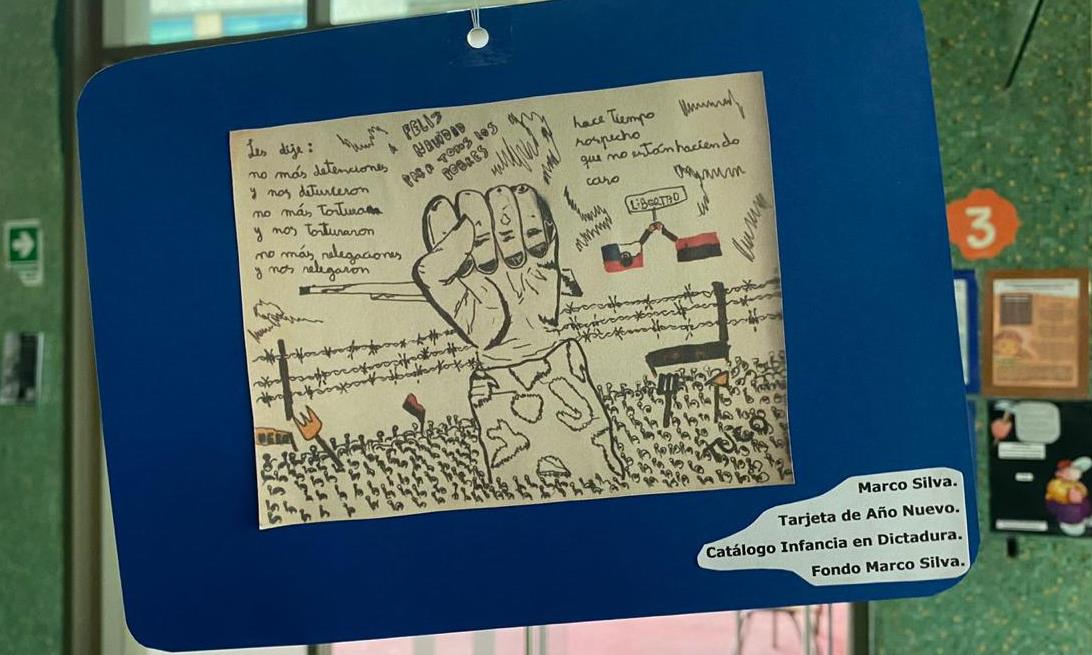 Les dije:
no más detenciones
y nos detuvieron
no más torturas
y nos torturaron
no más relegaciones
y nos relegaron
FELIZ
NAVIDAD
PARA TODOS LOS
POBRES
hace tiempo
sospecho
que no están haciendo
caso
LIBERTAD
Marco Silva.
Tarjeta de Año Nuevo.
Catálogo Infancia en Dictadura.
Fondo Marco Silva.
3